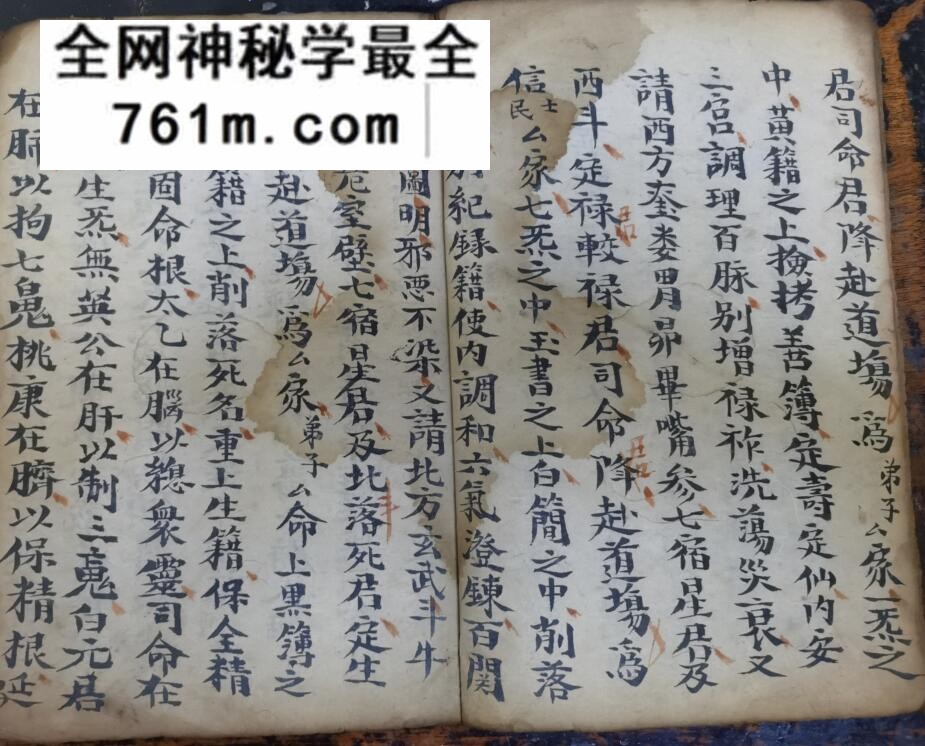 全网神秘学最全
761m.com
君司命君降赴道塲爲弟子厶家一炁之
中黃籍之上撿拷善簿定壽定仙内安
三宮調理百脉别增禄祚洗蕩災衰又
請西方奎婁胃昴畢嘴参七宿星君及
西斗定禄較禄君司命降赴道塲爲
信士民厶家七炁之中玉書之上白簡之中削落
紀録籍使内調和六氣澄鍊百関
圖明邪悪不染又請北方玄武斗牛
危室壁七宿星君及北落死君定生
赴道塲爲厶家弟子厶命上黒簿之
籍之上削落死名重上生籍保全精
固命根太乙在腦以緫衆靈司命在
生炁無英公在肝以制三䰟白元君
在肺以拘七鬼桃康在臍以保精根延